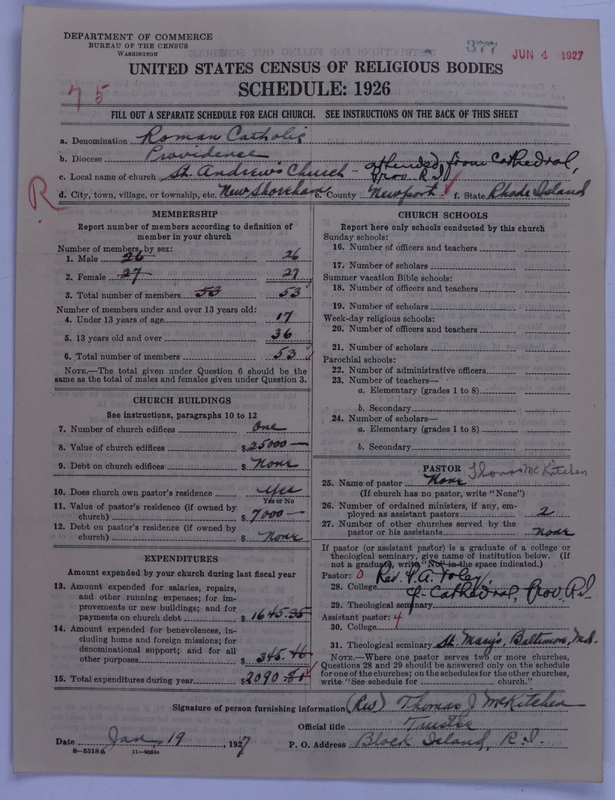 DEPARTMENT OF COMMERCE
BUREAU OF THE CENSUS
WASHINGTON
377
JUN 4 1927
UNITED STATES CENSUS OF RELIGIOUS BODIES
SCHEDULE: 1926
75
FILL OUT A SEPARATE SCHEDULE FOR EACH CHURCH. SEE INSTRUCTIONS ON THE BACK OF THIS SHEET
a. Denomination Roman Catholic
b. Diocese Providence
c. Local name of church St. Andrew's Church - attended from Cathedral, Prov. R.I.
R
d. City, town, village, or township, etc. New Shoreham e. County Newport f. State Rhode Island
MEMBERSHIP
Report number of members according to definition of member in your church
Number of members by sex:
1. Male 26 26
2. Female 27 27
3. Total number of members 53 53
Number of members under and over 13 years old:
4. Under 13 years of age 17
5. 13 years old and over 36
6. Total number of members 53
NOTE.—The total given under Question 6 should be the same as the total of males and females given under Question 3.
CHURCH BUILDINGS
See instructions, paragraphs 10 to 12
7. Number of church edifices One
8. Value of church edifices $ 25000 —
9. Debt on church edifices $ None
10. Does church own pastor's residence Yes
Yes or No
11. Value of pastor's residence (if owned by church) $ 7000 —
12. Debt on pastor's residence (if owned by church) $ None
EXPENDITURES
Amount expended by your church during last fiscal year
13. Amount expended for salaries, repairs, and other running expenses; for improvements or new buildings; and for payments on church debt $ 1645.35
14. Amount expended for benevolences, including home and foreign missions; for denominational support; and for all other purposes $ 345
15. Total expenditures during year $ 2090
CHURCH SCHOOLS
Report here only schools conducted by this church
Sunday schools:
16. Number of officers and teachers
17. Number of scholars
Summer vacation Bible schools:
18. Number of officers and teachers
19. Number of scholars
Week-day religious schools:
20. Number of officers and teachers
21. Number of scholars
Parochial schools:
22. Number of administrative officers
23. Number of teachers—
a. Elementary (grades 1 to 8)
b. Secondary
24. Number of scholars—
a. Elementary (grades 1 to 8)
b. Secondary
PASTOR
Thomas McKitchen
25. Name of pastor None
(If church has no pastor, write "None")
26. Number of ordained ministers, if any, employed as assistant pastors 2
27. Number of other churches served by the pastor or his assistants none
If pastor (or assistant pastor) is a graduate of a college or theological seminary, give name of institution below. (If not a graduate, write "No" in the space indicated.)
Pastor: 0 Rev. P.A. Foley,
28. College of Cathedral, Prov. R.I.
29. Theological seminary
Assistant pastor: 4
30. College
31. Theological seminary St. Mary's, Baltimore, Md.
NOTE.—Where one pastor serves two or more churches, Questions 28 and 29 should be answered only on the schedule for one of the churches; on the schedules for the other churches, write "See schedule for church."
Signature of person furnishing information (Rev) Thomas J McKitchen
Official title Trustee
Date Jan. 19, 1927
P. O. Address Block Island, R.I.
8—5318a 11—9659a